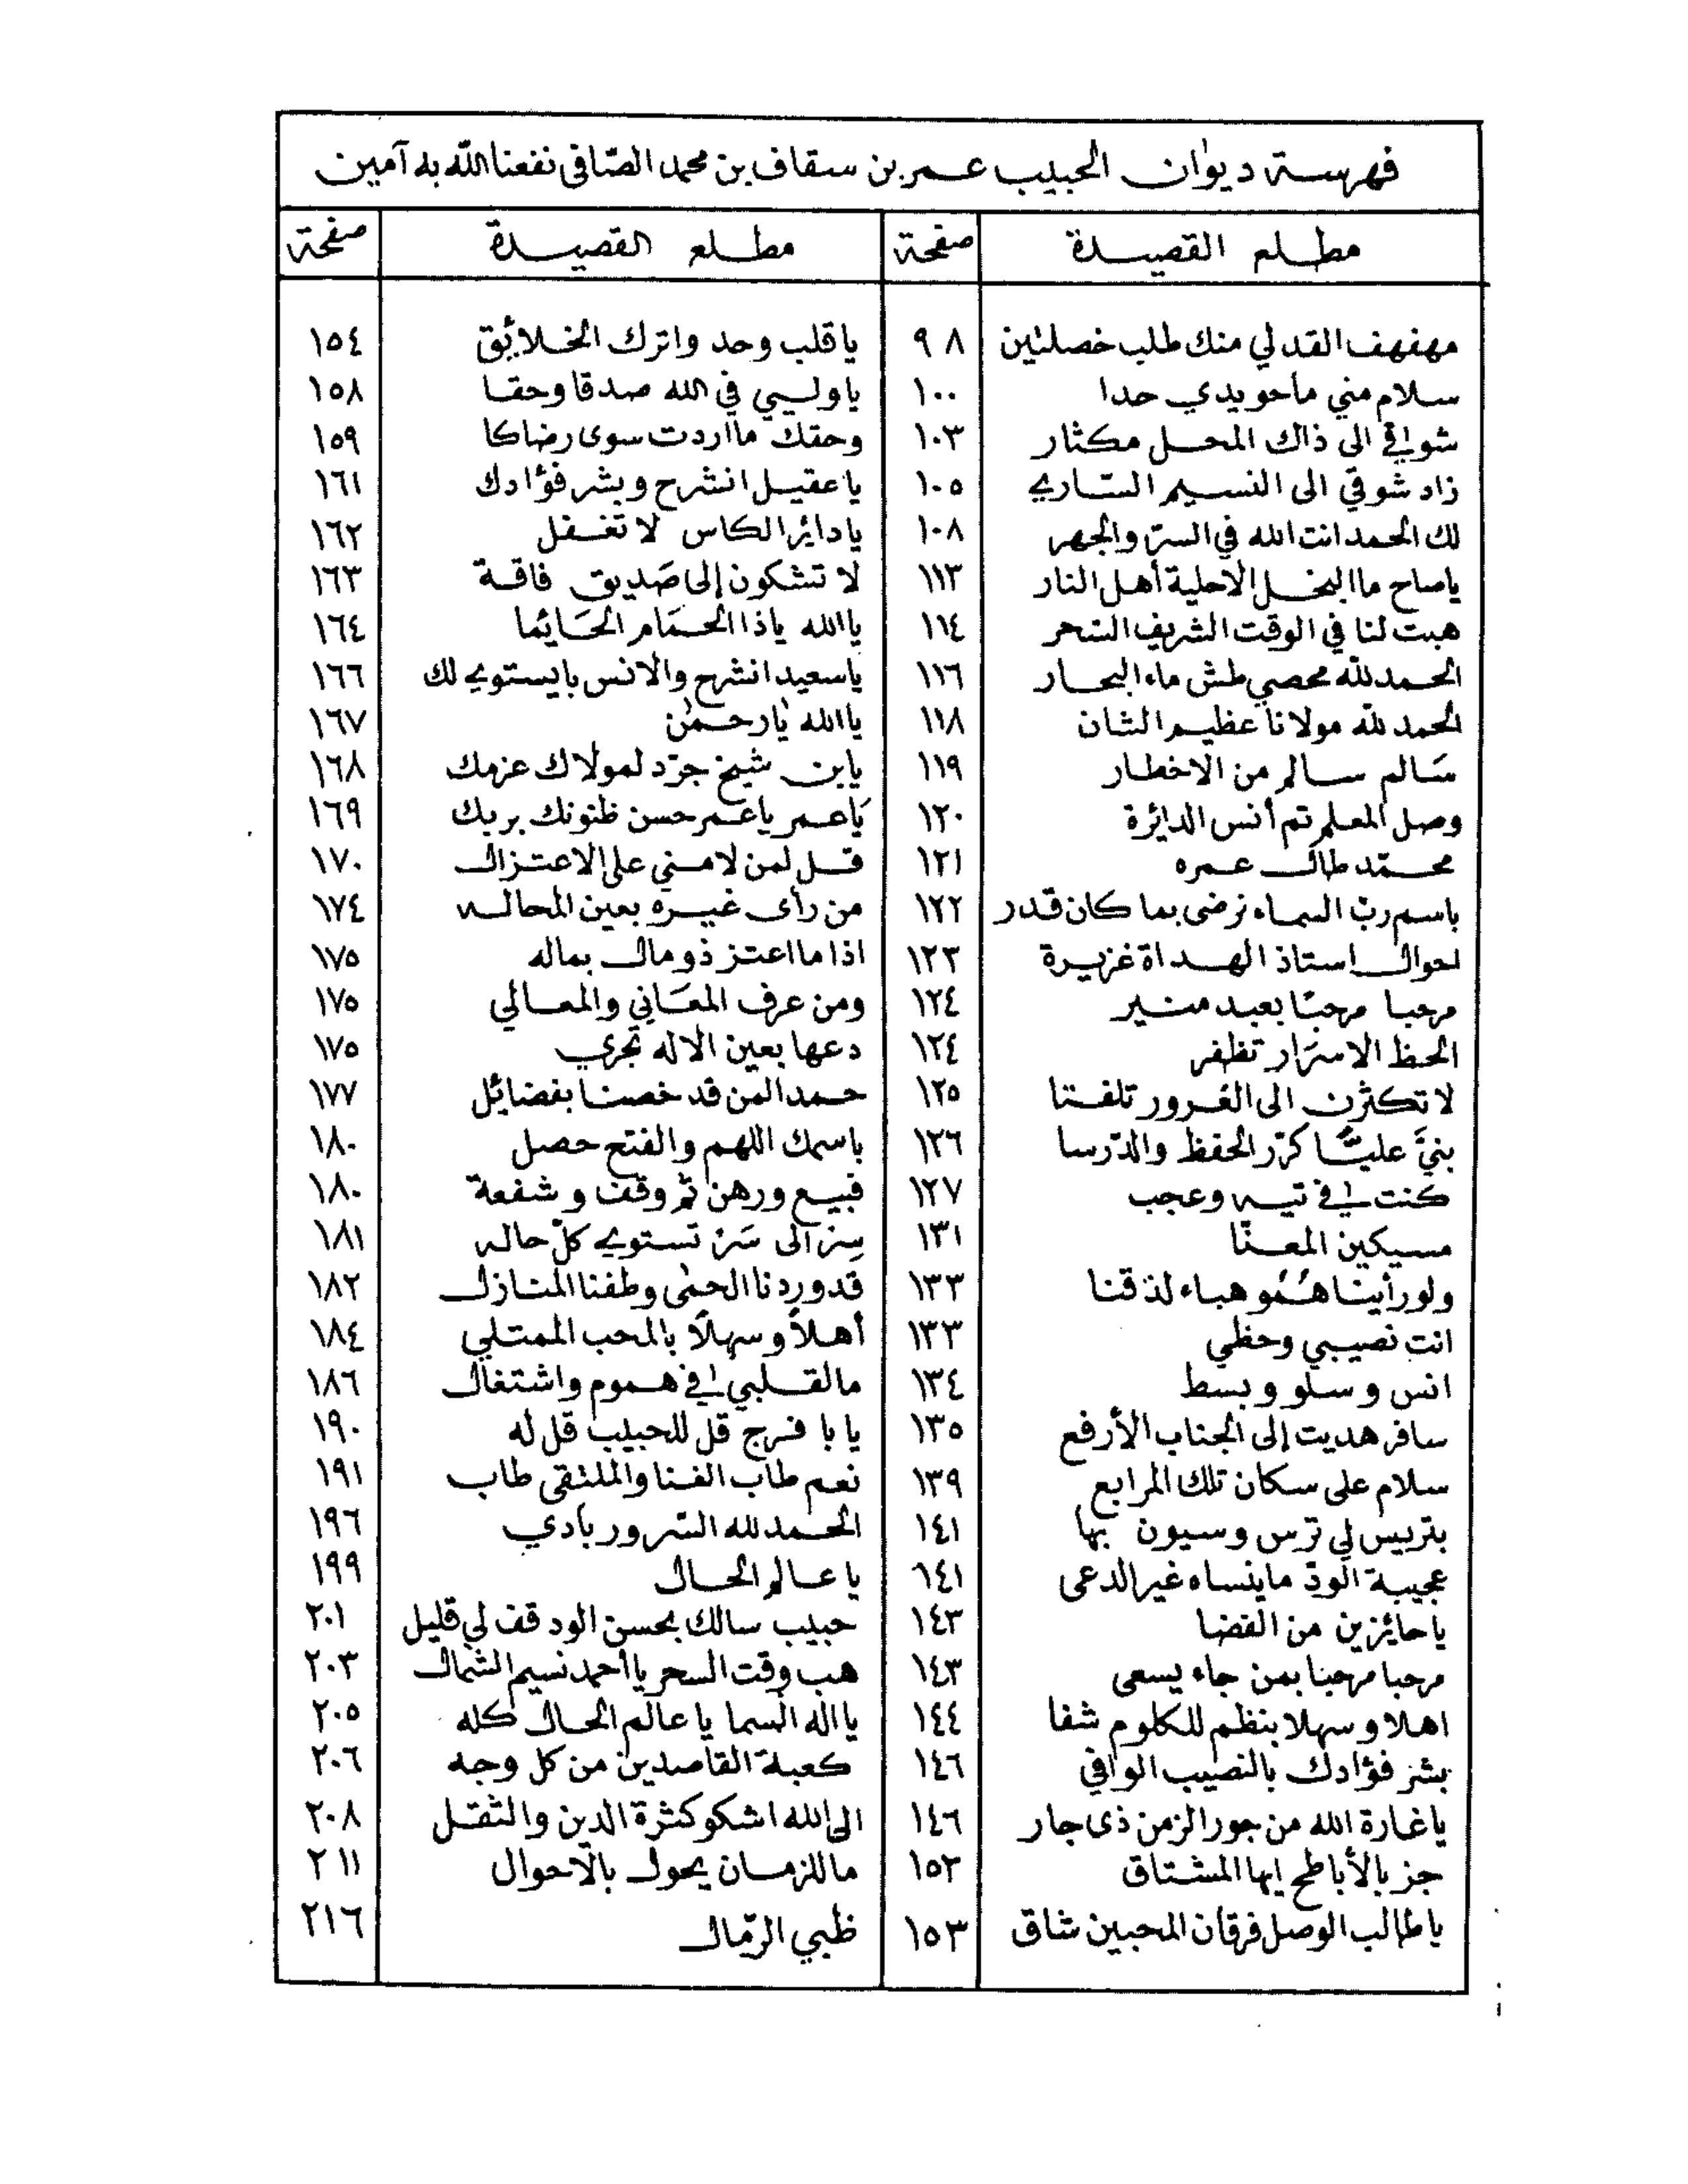 فهرسة ديوان الحبيب عمر بن سقاف بن محمد الصّافي نفعنا الله به آمين
مطلع القصيدة صفحة مطلع القصيدة صفحة
مهفهف القد لي منك طلب خصلتين ٩٨ ياقلب وحد واترك الخلائق ١٥٤
سلام مني ماحويدي حدا ١٠٠ ياوليي في الله صدقا وحقا ١٥٨
شواقي الى ذاك المحل مكثار ١٠٣ وحقك مااردت سوى رضاكا ١٥٩
زاد شوقي الى النسيم السّاري ١٠٥ ياعقيل انشرح وبشر فؤادك ١٦١
لك الحمد انت الله في السرّ والجهر ١٠٨ يادائر الكاس لا تغفل ١٦٢
ياصاح ماالبخل الاحلية أهل النار ١١٣ لا تشكون إلى صَديق فاقة ١٦٣
هبت لنا في الوقت الشريف السّحر ١١٤ ياالله ياذا الحمَام الحَائما ١٦٤
الحمد للّه محصي طش ماء البحار ١١٦ ياسعيد انشرح والانس بايستوي لك ١٦٦
الحمد للّه مولانا عظيم الشان ١١٨ ياالله يارحمٰن ١٦٧
سَالم سالم من الاخطار ١١٩ يابن شيخ جرّد لمولاك عزمك ١٦٨
وصل المعلم تم أنس الدائرة ١٢٠ يَاعمر ياعمر حسن ظنونك بربك ١٦٩
محمّد طال عمره ١٢١ قل لمن لامني على الاعتزال ١٧٠
باسم ربّ السماء نرضى بما كان قدر ١٢٢ من رأى غيره بعين المحاله ١٧٤
احوال استاذ الهداة غزيرة ١٢٣ اذا مااعتز ذو مال بماله ١٧٥
مرحبا مرحبًا بعيد منير ١٢٤ ومن عرف المعَاني والمعالي ١٧٥
الحظ الاسرَار تظفر ١٢٤ دعها بعين الاله تجري ١٧٥
لا تكثرن الى الغرور تلفتا ١٢٥ حمدا لمن قد خصنا بفضائل ١٧٧
بنيَّ عليًّا كرّر الحفظ والدّرسا ١٢٦ باسمك اللهم والفتح حصل ١٨٠
كنت في تيه وعجب ١٢٧ فبيع ورهن ثم وقف وشفعة ١٨٠
مسيكين المعنّا ١٣١ سِرْ الى سَرْ تستوي كلّ حاله ١٨١
ولو رأينا هُمُو هباء لذقنا ١٣٣ قدوردنا الحمٰى وطفنا المنازل ١٨٢
انت نصيبي وحظي ١٣٣ أهلاً وسهلاً بالمحب الممتلي ١٨٤
انس وسلو وبسط ١٣٤ مالقلبي في هموم واشتغال ١٨٦
سافر هديت إلى الجناب الأرفع ١٣٥ يا با فرج قل للحبيب قل له ١٩٠
سلام على سكان تلك المرابع ١٣٩ نعم طاب الفنا والملتقى طاب ١٩١
بتريس لي ترس وسيون بها ١٤١ الحمد لله السّرور بادي ١٩٦
عجيبة الودّ ماينساه غير الدعى ١٤١ يا عالم الحال ١٩٩
ياحائزين من القضا ١٤٣ حبيب سالك بحسن الود قف لي قليل ٢٠١
مرحبا مرحبا بمن جاء يسعى ١٤٣ هب وقت السحر ياأحمد نسيم الشمال ٢٠٣
اهلا وسهلا بنظم للكلوم شفا ١٤٤ ياالٰه السما يا عالم الحال كله ٢٠٥
بشر فؤادك بالنصيب الوافي ١٤٦ كعبة القاصدين من كل وجه ٢٠٦
ياغارة الله من جور الزمن ذى جار ١٤٦ الى الله اشكو كثرة الدين والثقل ٢٠٨
جز بالأباطح ايها المشتاق ١٥٢ ماللزمان يحول بالاحوال ٢١١
ياطالب الوصل فرقان المحبين شاق ١٥٣ ظبي الرّمال ٢١٦